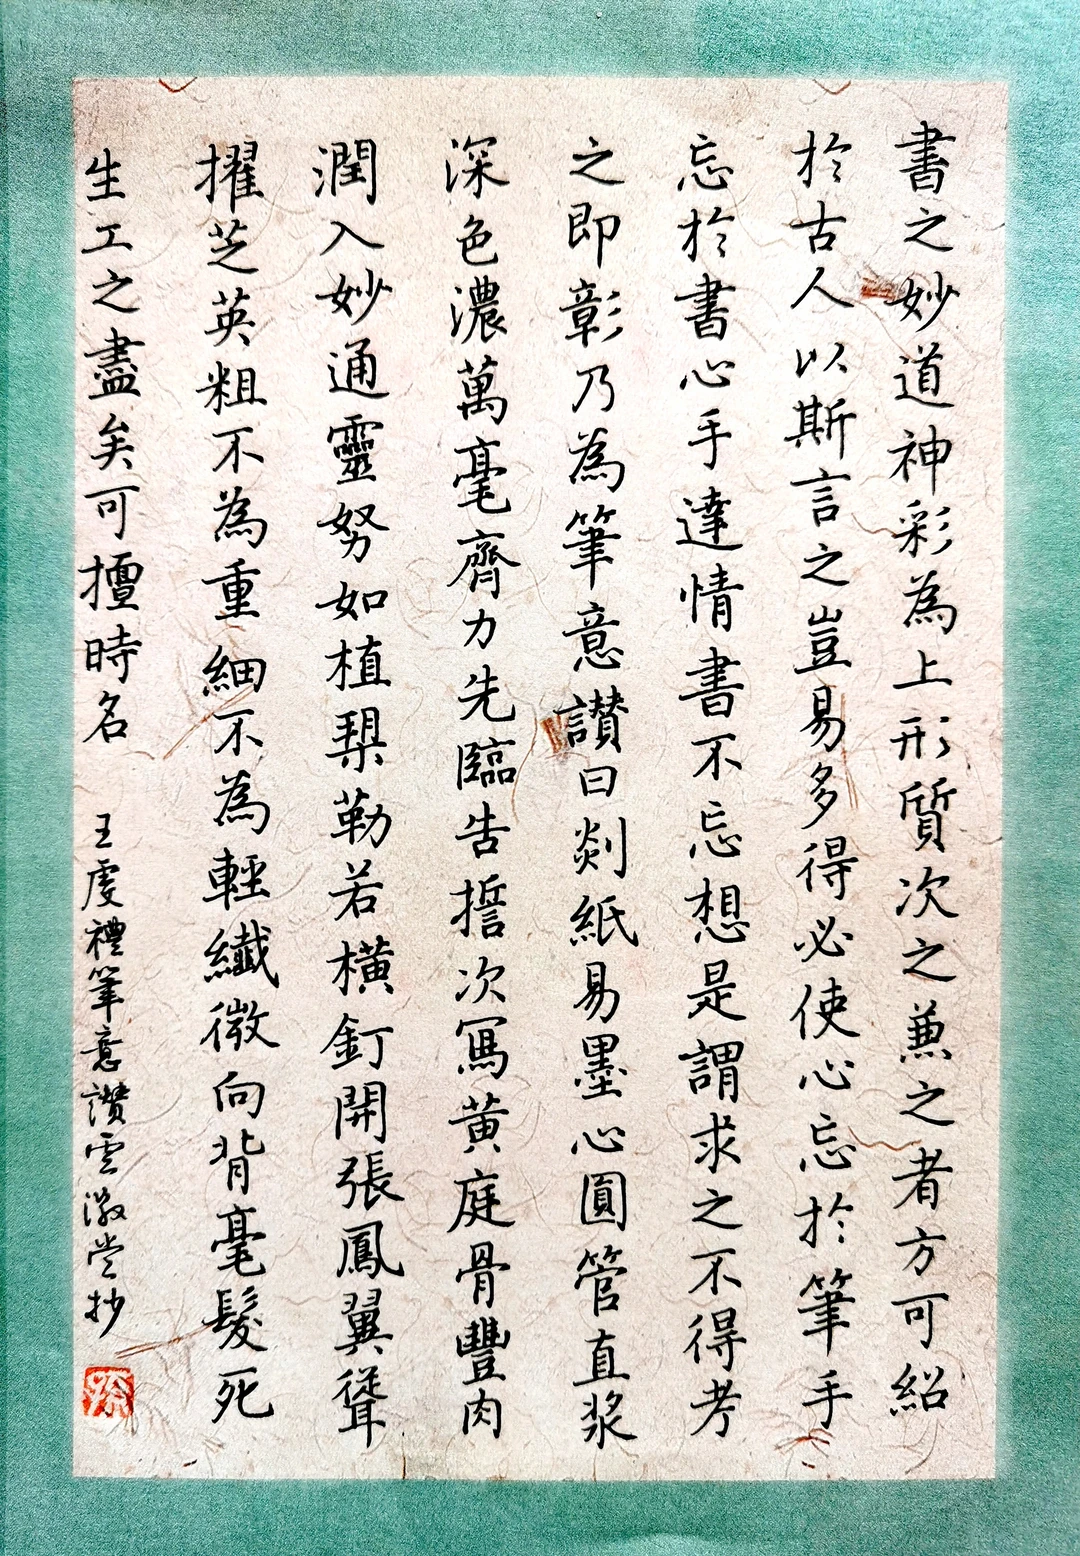 書之妙道神彩為上形質次之兼之者方可紹
於古人以斯言之豈易多得必使心忘於筆手
忘於書心手達情書不忘想是謂求之不得考
之即彰乃為筆意讚曰剡紙易墨心圓管直浆
深色濃萬毫齊力先臨告誓次寫黃庭骨豐肉
潤入妙通靈努如植槊勒若橫釘開張鳳翼聳
擢芝英粗不為重細不為輕纖微向背毫髮死
生工之盡矣可擅時名 王虔禮筆意讚雲澂堂抄